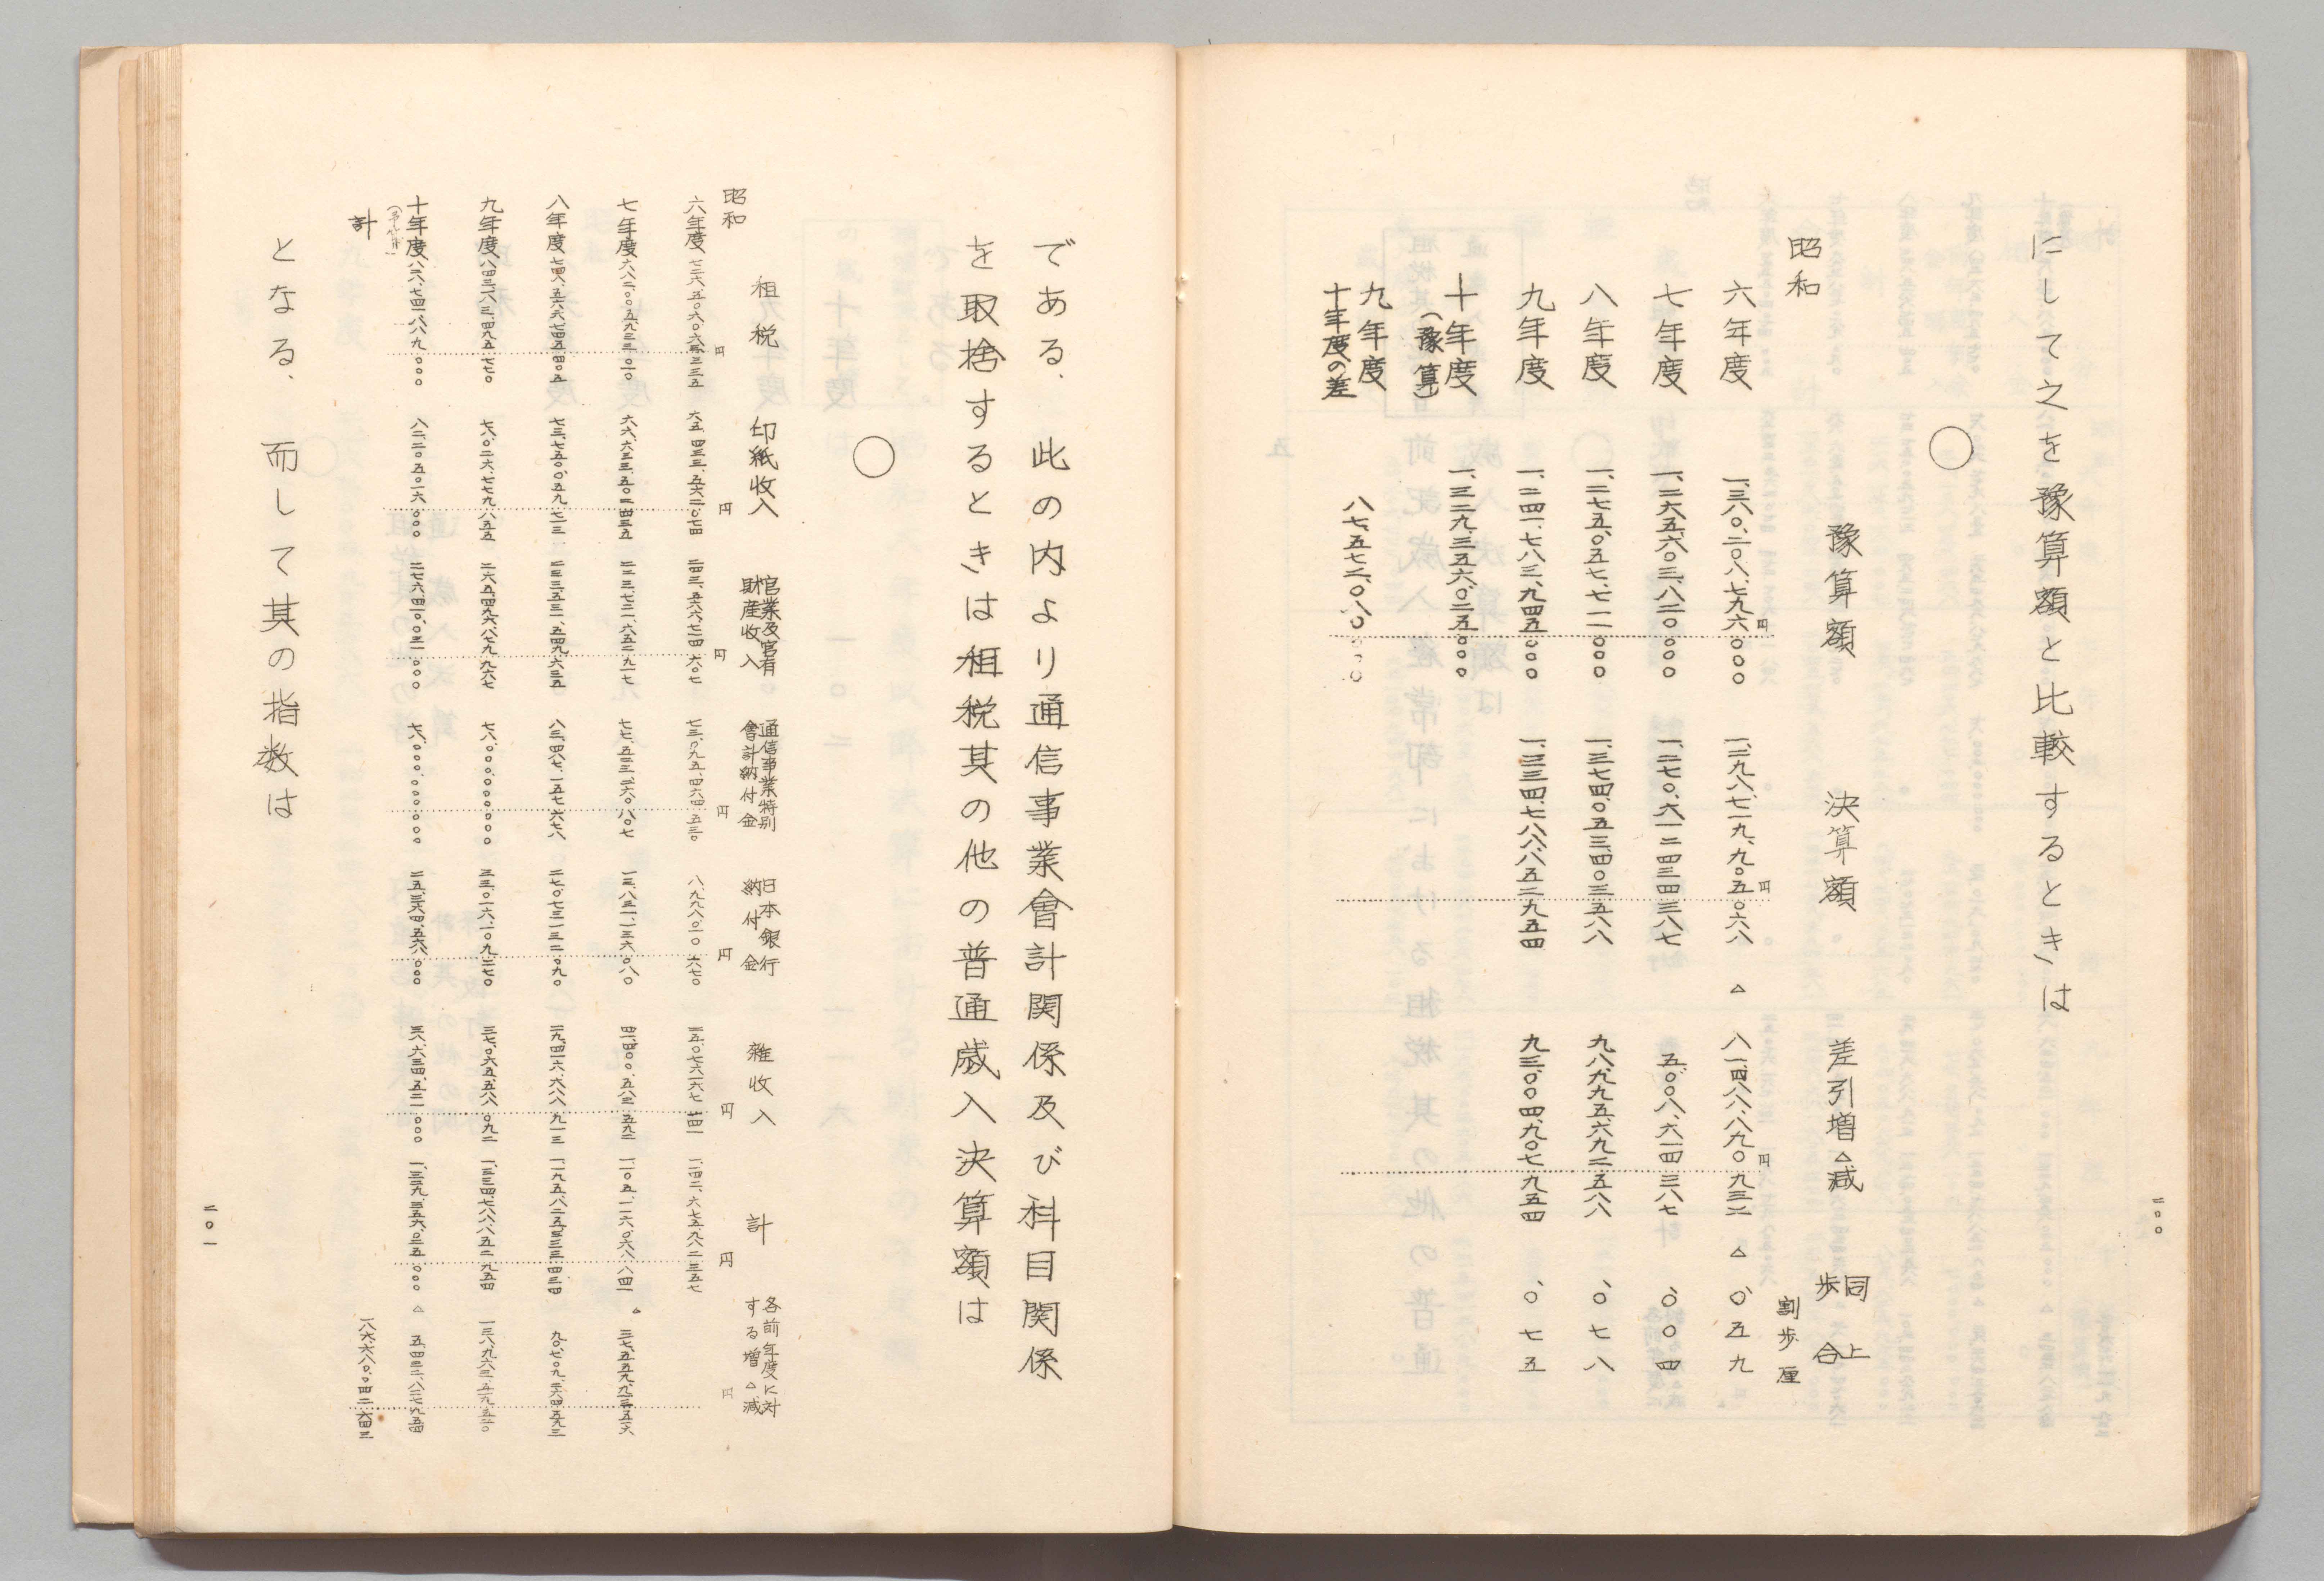 にして之を豫算額と比較するときは
○
豫算額 決算額 差引増△減 同上歩合
昭和 円 円 円 割歩厘
六年度 一、三八〇、二〇八、七九六 〇〇〇 一、二九八、七一九、九〇五 〇六八 △ 八一、四八八、八九〇 九三二 △ 〇、五九
七年度 一、二六五、六〇三、八二〇 〇〇〇 一、二七〇、六一二、四三四 三八七 五、〇〇八、六一四 三八七 、〇〇四
八年度 一、二七五、〇五七、七一一 〇〇〇 一、三七四、〇五三、四〇三 五八八 九八、九九五、六九二 五八八 、〇七八
九年度 一、二四一、七八三、九四五 〇〇〇 一、三三四、七八八、八五二 九五四 九三、〇〇四、九〇七 九五四 、〇七五
十年度(豫算) 一、三二九、三五六、〇二五 〇〇〇
九年度十年度の差 八七、五七二、〇八〇 〇〇〇
二〇〇
である、此の内より通信事業會計関係及び科目関係
を取捨するときは租税其の他の普通歳入決算額は
○
租税 印紙收入 官業及官有財産收入 通信事業特別會計納付金 日本銀行納付金 雜收入 計 各前年度に対する増△減
昭和 円 円 円 円 円 円 円 円
六年度 七一六、五〇六、〇六三 三三五 六五、四三三、五六二 〇七四 二四三、五六六、七二四 六〇七 七三、〇九五、四六四 五三〇 八、九九八、〇一〇 六七〇 三五、〇七六、一六七 一四一 一、一四二、六七五、九九二 三五七
七年度 六八二、〇〇五、九三三 〇一〇 六六、六二二、五〇一 四三五 二二三、七二二、六五二 九一七 七七、五三三、二六〇 八〇七 一三、八三一、一三六 〇八〇 四一、四〇〇、五八二 五九二 一、一〇五、一一六、〇六六 八四一 △ 三七、五五九、九二五 五一六
八年度 七四八、五六六、七四五 四〇五 七三、七五〇、〇五九 七一三 二三三、五三一、五四九 六三五 八三、四八七、一五七 六七八 二七、〇七三、一三二 〇九〇 二九、四一六、六八八 九一三 一、一九五、八二五、三三三 四三四 九〇、七〇九、二六六 五九三
九年度 八四三、一八三、四九五 七七〇 七八、〇二六、七七九 八五五 二六五、四九六、八七九 九六七 七八、〇〇〇、〇〇〇 〇〇〇 三三、〇一六、一〇九 二七〇 三七、〇六五、五八八 〇九二 一、三三四、七八八、八五二 九五四 一三八、九六三、五一九 五二〇
十年度(予算) 八二八、七四一、八八九 〇〇〇 八二、二〇五、〇一六 〇〇〇 二七六、四一〇、〇三一 〇〇〇 七八、〇〇〇、〇〇〇 〇〇〇 二五、三六四、五六八 〇〇〇 三八、六三四、五二一 〇〇〇 一、三二九、三五六、〇二五 〇〇〇 △ 五、四三二、八二七 九五四
計 一八六、六八〇、〇三二 六四三
となる、而して其の指数は
二〇一